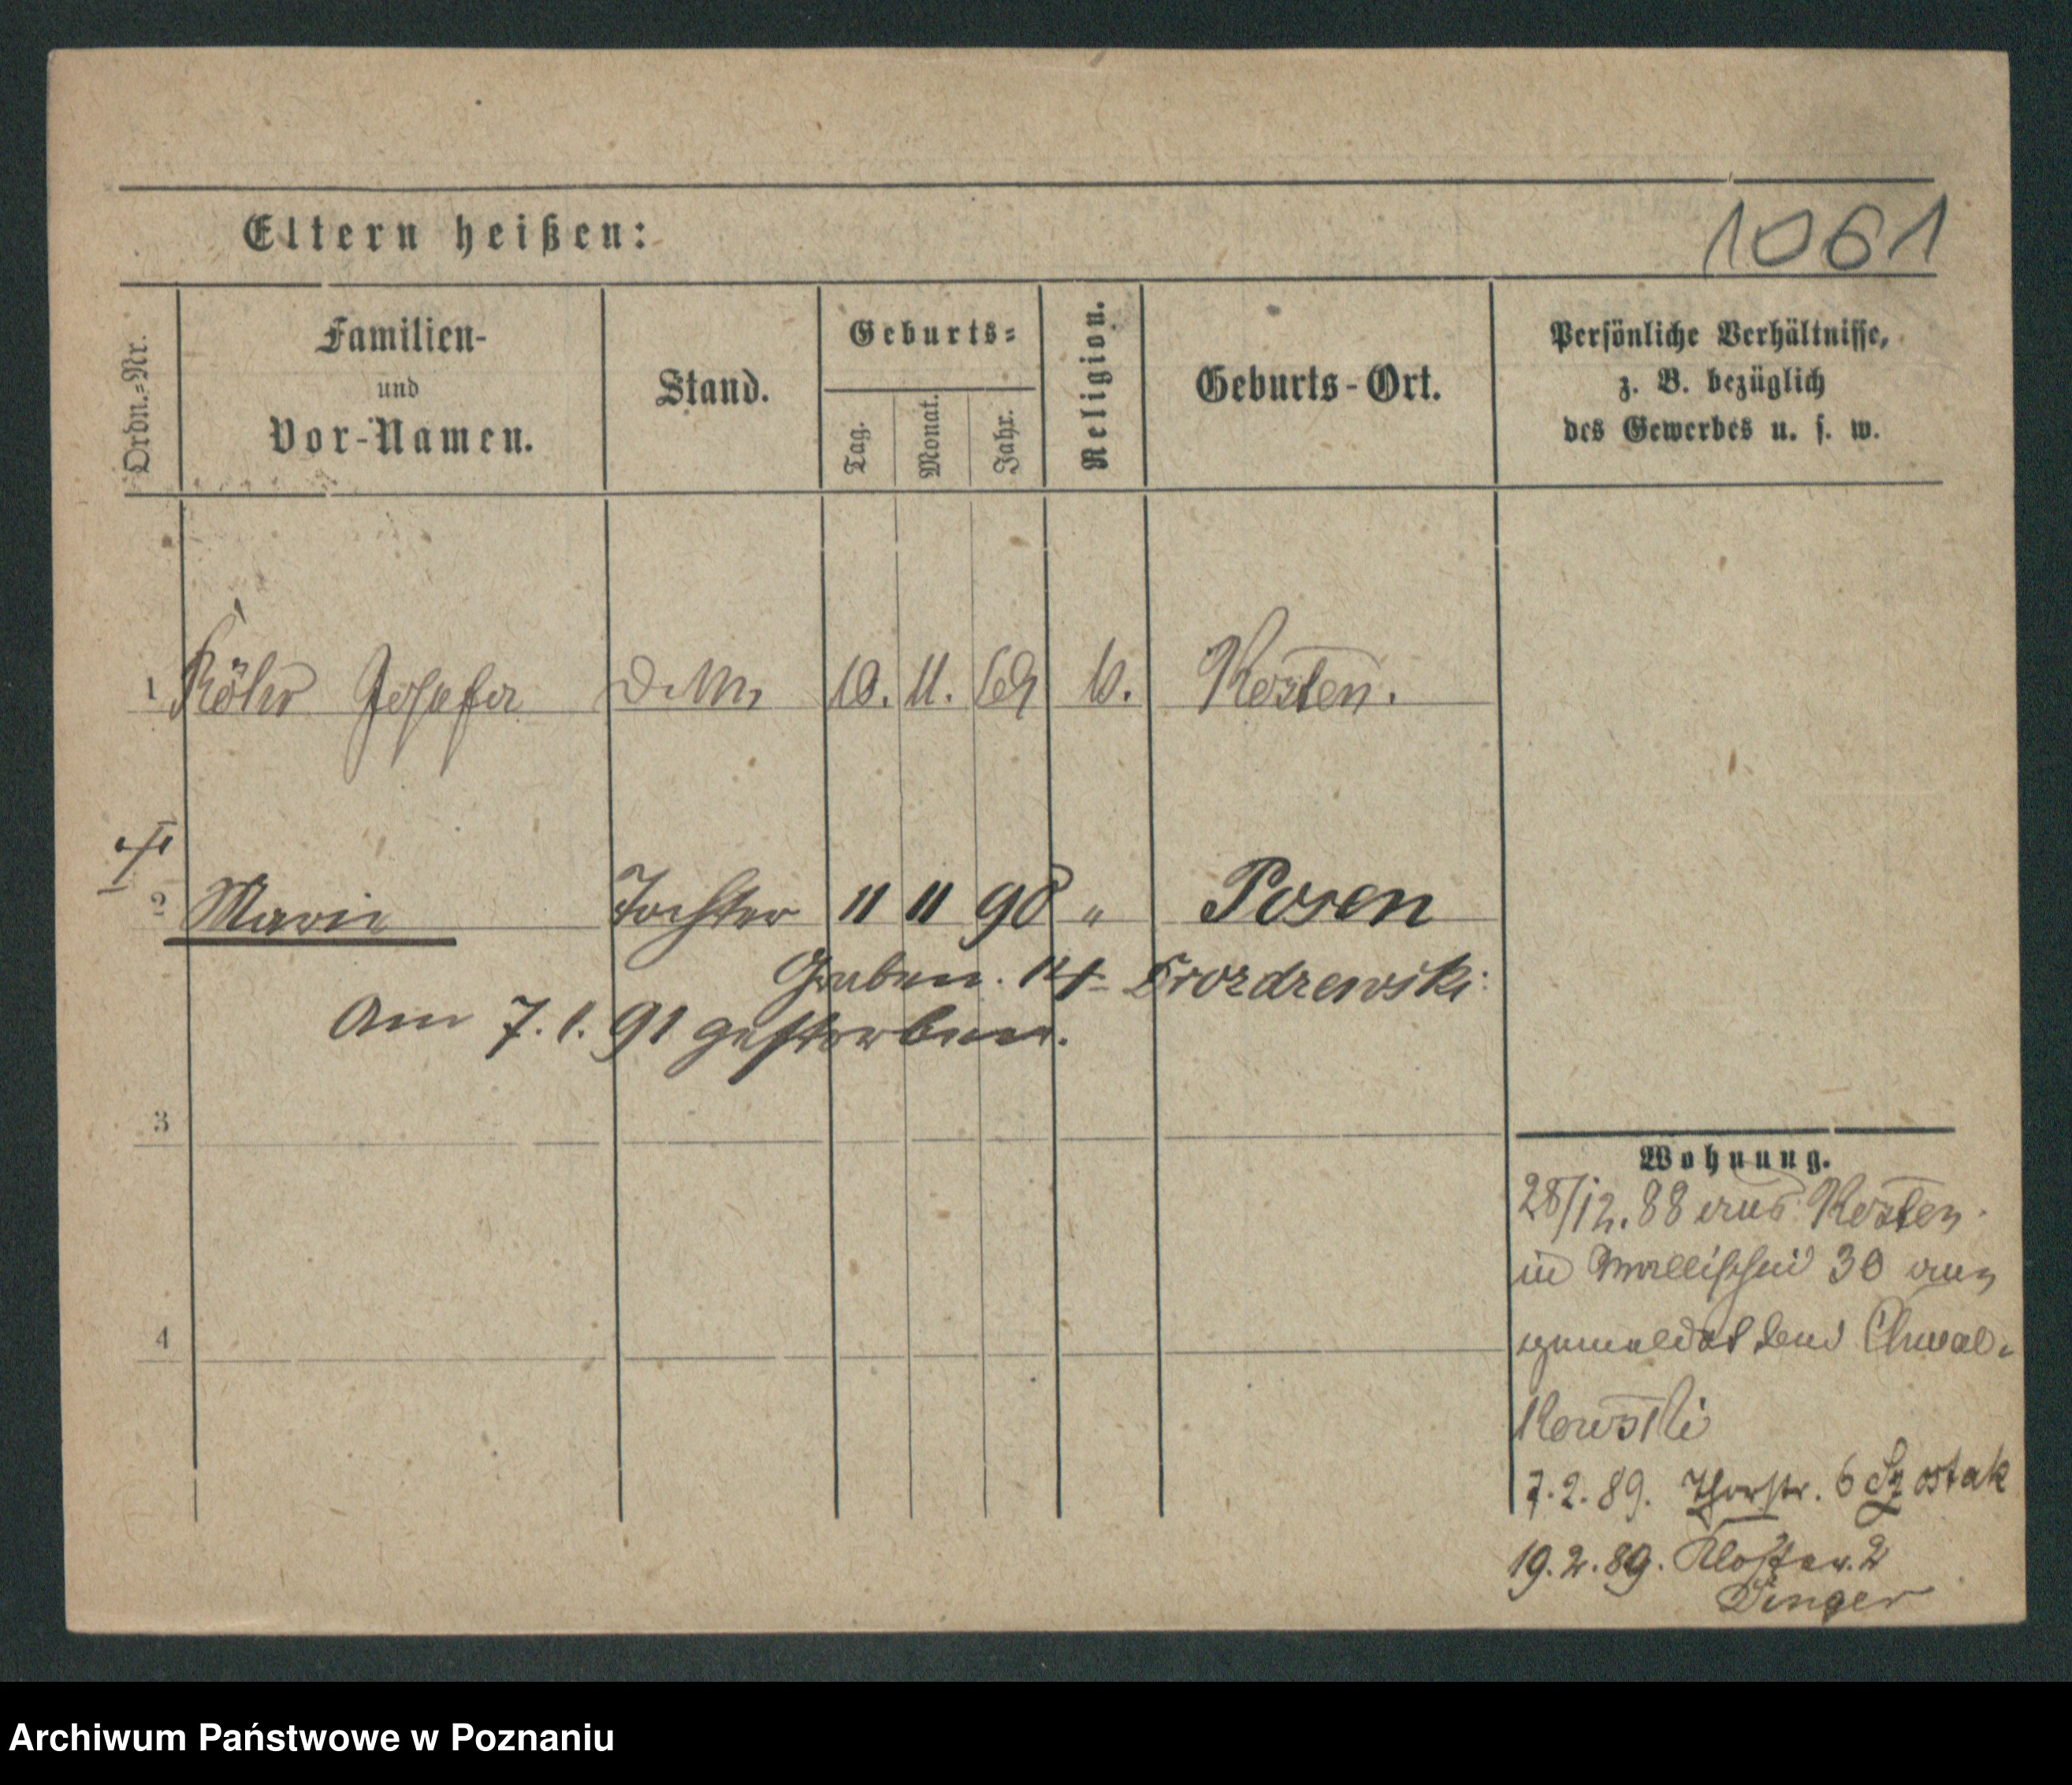 Eltern heißen:
1061
Ordn.=Nr.
Familien-
und
Vor-Namen.
Stand.
Geburts=
Tag.
Monat.
Jahr.
Religion.
Geburts-Ort.
Persönliche Verhältnisse,
z. B. bezüglich
des Gewerbes u. s. w.
1 Röhr Josefa 10. 11. k. Kosten.
2 Marie Tochter 11 11 90 " Posen
Graben. 14 Drozdzewski
Am 7. 1. 91 gestorben.
3
4
Wohnung.
28/12. 88 aus Kosten
in Wallischei 30 an
gemeldet Chwal-
kowski
7. 2. 89. Thorstr. 6 Szostak
19. 2. 89. Kloster. 2
Dinger
Archiwum Państwowe w Poznaniu